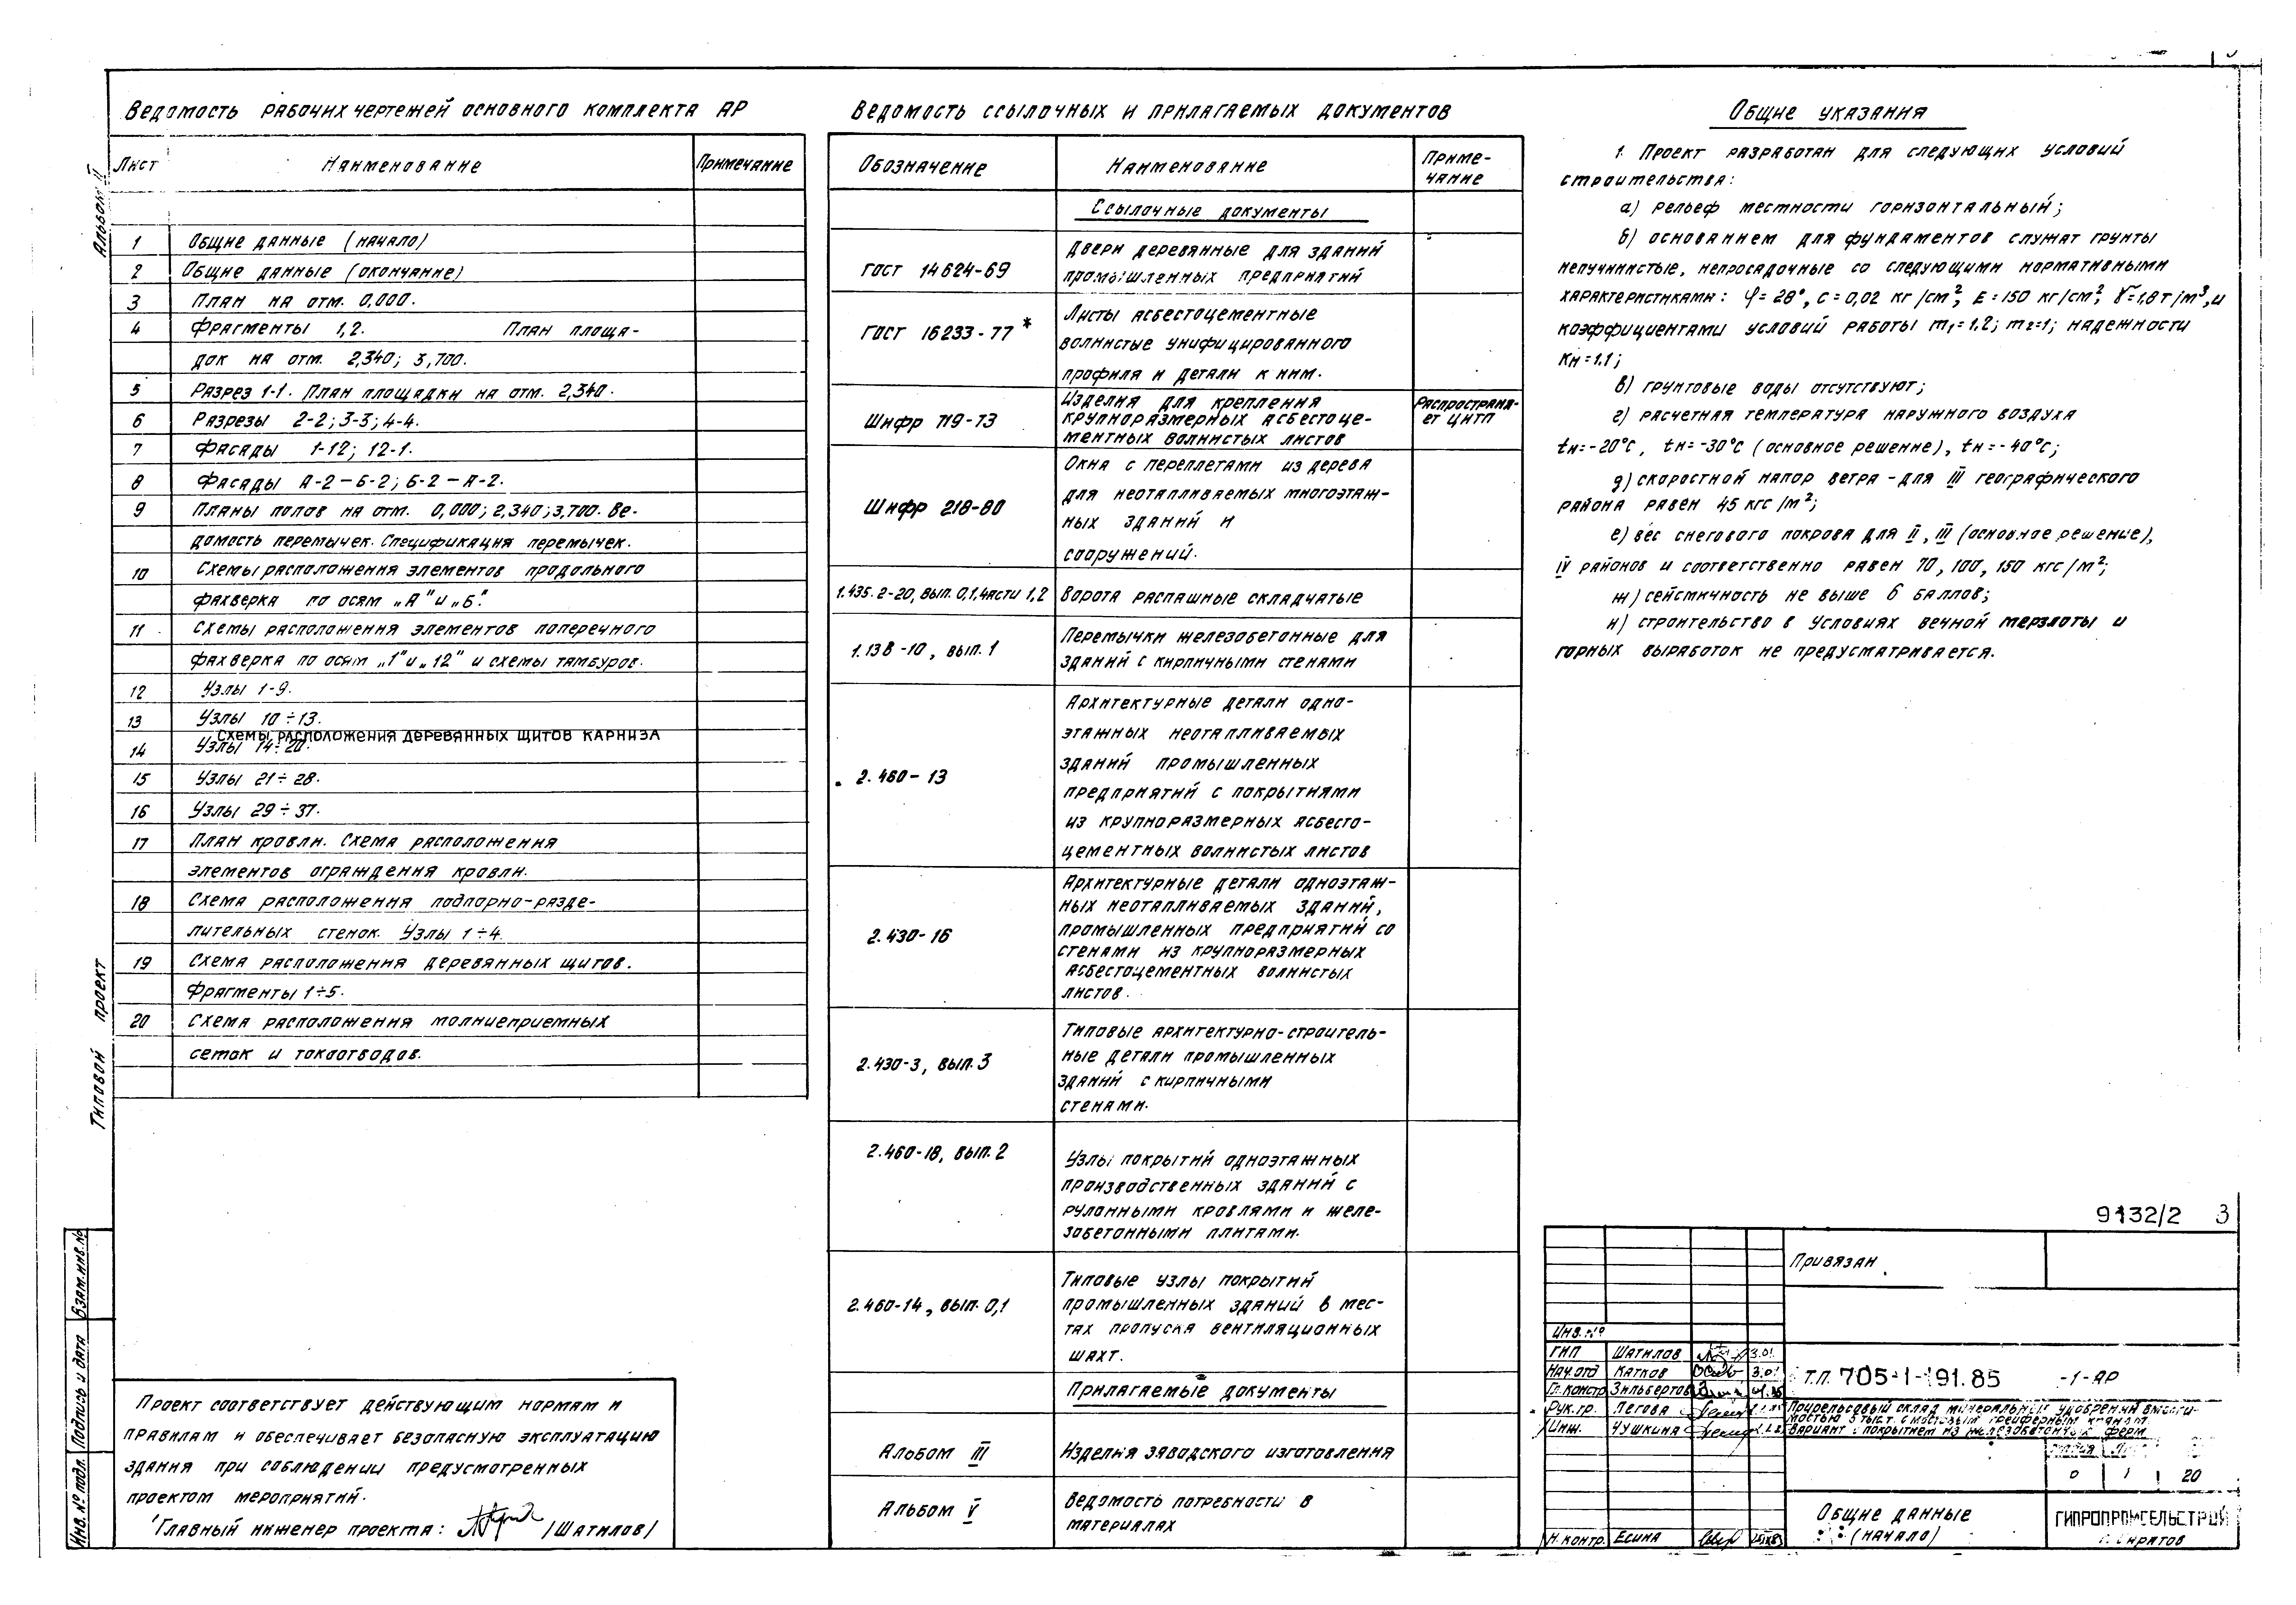 Ведомость рабочих чертежей основного комплекта АР
Лист Наименование Примечание
1 Общие данные (начало)
2 Общие данные (окончание)
3 План на отм. 0,000.
4 Фрагменты 1,2. План площа-
док на отм. 2,340; 3,700.
5 Разрез 1-1. План площадки на отм. 2,340.
6 Разрезы 2-2; 3-3; 4-4.
7 Фасады 1-12; 12-1.
8 Фасады А-2 – Б-2; Б-2 – А-2.
9 Планы полов на отм. 0,000; 2,340; 3,700. Ве-
домость перемычек. Спецификация перемычек.
10 Схемы расположения элементов продольного
фахверка по осям „А" и „Б".
11 Схемы расположения элементов поперечного
фахверка по осям „1" и „12" и схемы тамбуров.
12 Узлы 1-9.
13 Узлы 10÷13.
Схемы расположения деревянных щитов карниза
14 Узлы 14÷20.
15 Узлы 21÷28.
16 Узлы 29÷37.
17 План кровли. Схема расположения
элементов ограждения кровли.
18 Схема расположения подпорно-разде-
лительных стенок. Узлы 1÷4.
19 Схема расположения деревянных щитов.
Фрагменты 1÷5.
20 Схема расположения молниеприемных
сеток и токоотводов.
Проект соответствует действующим нормам и
правилам и обеспечивает безопасную эксплуатацию
здания при соблюдении предусмотренных
проектом мероприятий.
Главный инженер проекта: /Шатилов/
Альбом II
Типовой проект
Взам. инв. №
Подпись и дата
Инв. № подл.
Ведомость ссылочных и прилагаемых документов
Обозначение Наименование Приме-
чание
Ссылочные документы
ГОСТ 14624-69 Двери деревянные для зданий
промышленных предприятий
ГОСТ 16233-77* Листы асбестоцементные
волнистые унифицированного
профиля и детали к ним.
Шифр 719-73 Изделия для крепления Распространя-
крупноразмерных асбестоце- ет ЦИТП
ментных волнистых листов
Шифр 218-80 Окна с переплетами из дерева
для неотапливаемых многоэтаж-
ных зданий и
сооружений.
1.435.2-20, вып. 0,1, части 1,2 Ворота распашные складчатые
1.138-10, вып. 1 Перемычки железобетонные для
зданий с кирпичными стенами
2.460-13 Архитектурные детали одно-
этажных неотапливаемых
зданий промышленных
предприятий с покрытиями
из крупноразмерных асбесто-
цементных волнистых листов
2.430-16 Архитектурные детали одноэтаж-
ных неотапливаемых зданий,
промышленных предприятий со
стенами из крупноразмерных
асбестоцементных волнистых
листов.
2.430-3, вып. 3 Типовые архитектурно-строитель-
ные детали промышленных
зданий с кирпичными
стенами.
2.460-18, вып. 2 Узлы покрытий одноэтажных
производственных зданий с
рулонными кровлями и желе-
зобетонными плитами.
2.460-14, вып. 0,1 Типовые узлы покрытий
промышленных зданий в мес-
тах пропуска вентиляционных
шахт.
Прилагаемые документы
Альбом III Изделия заводского изготовления
Альбом V Ведомость потребности в
материалах
Общие указания
1. Проект разработан для следующих условий
строительства:
а) рельеф местности горизонтальный;
б) основанием для фундаментов служат грунты
непучинистые, непросадочные со следующими нормативными
характеристиками: φ=28°, с=0,02 кг/см², Е=150 кг/см², γ=1,8 т/м³, и
коэффициентами условий работы m₁=1,2; m₂=1; надежности
Кн=1.1;
в) грунтовые воды отсутствуют;
г) расчетная температура наружного воздуха
tн=-20°с, tн=-30°с (основное решение), tн=-40°с;
д) скоростной напор ветра - для III географического
района равен 45 кгс/м²;
е) вес снегового покрова для II, III (основное решение),
IV районов и соответственно равен 70, 100, 150 кгс/м²;
ж) сейсмичность не выше 6 баллов;
и) строительство в условиях вечной мерзлоты и
горных выработок не предусматривается.
9132/2 3
Привязан
Инв. №
ГИП Шатилов
Нач. отд Катков
Гл. констр Зильбертов
Рук. гр. Легова
Инж. Чушкина
Н. контр. Есина
Т.П. 705-1-191.85 -1-АР
Прирельсовый склад минеральных удобрений вмести-
мостью 5 тыс.т. с мостовым грейферным краном.
Вариант с покрытием из железобетонных ферм
Р 1 20
Общие данные
(начало)
ГИПРОПРОМСЕЛЬСТРОЙ
г. Саратов